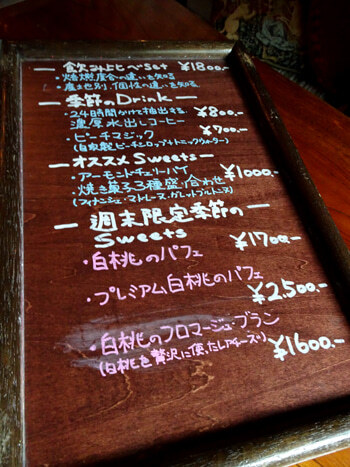 飲みくらべset ¥1800.-
・焙煎度合の違いを知る
・産地別、個性の違いを知る
季節のDrink
・24時間かけて抽出する ¥800.-
濃厚水出しコーヒー
・ピーチマジック ¥700.-
(自家製ピーチシロップ+トニックウォーター)
オススメSweets
・アーモンドチェリーパイ ¥1000.-
・焼き菓子3種盛り合わせ
(フィナンシェ・マドレーヌ・ガレットブルトンヌ)
週末限定季節の
Sweets
・白桃のパフェ ¥1700.-
・プレミアム白桃のパフェ ¥2,500.-
・白桃のフロマージュ・ブラン ¥1600.-
(白桃を贅沢に使ったレアチーズ♪)